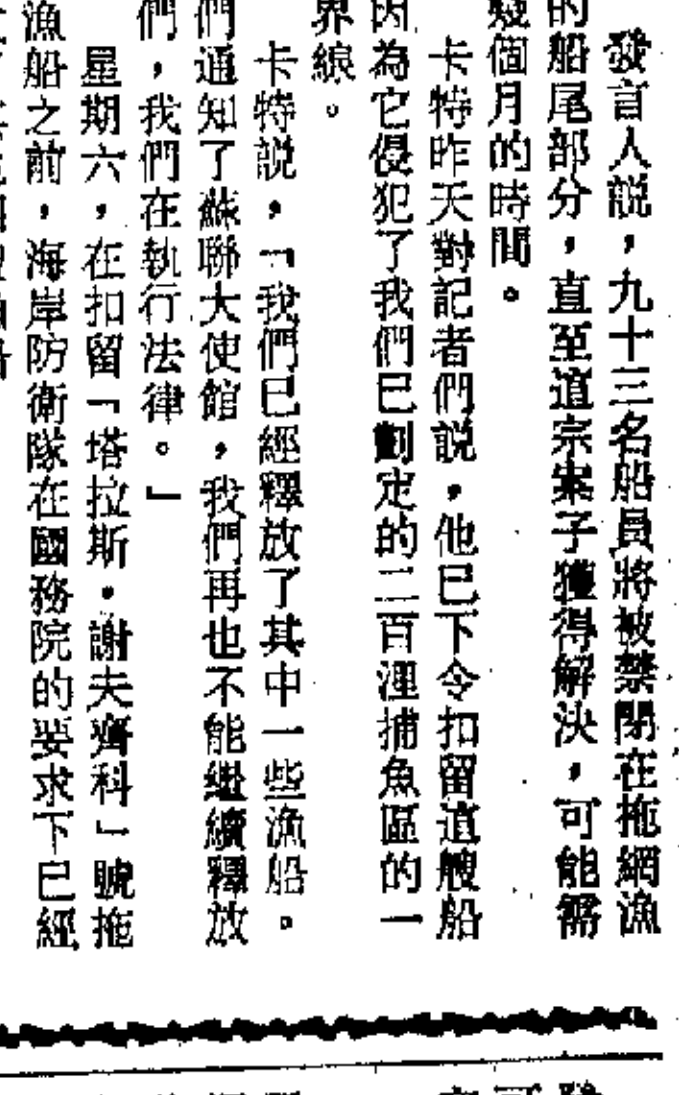 發言人説，九十三名船員將被禁閉在拖網漁
的船尾部分，直至這宗案子獲得解決，可能需
幾個月的時間。
卡特昨天對記者們説，他已下令扣留這艘船
因為它侵犯了我們已劃定的二百浬捕魚區的一
界線。
卡特説，「我們已經釋放了其中一些漁船。
們通知了蘇聯大使館，我們再也不能繼續釋放
們，我們在執行法律。」
星期六，在扣留「塔拉斯·謝夫齊科」號拖
漁船之前，海岸防衛隊在國務院的要求下已經